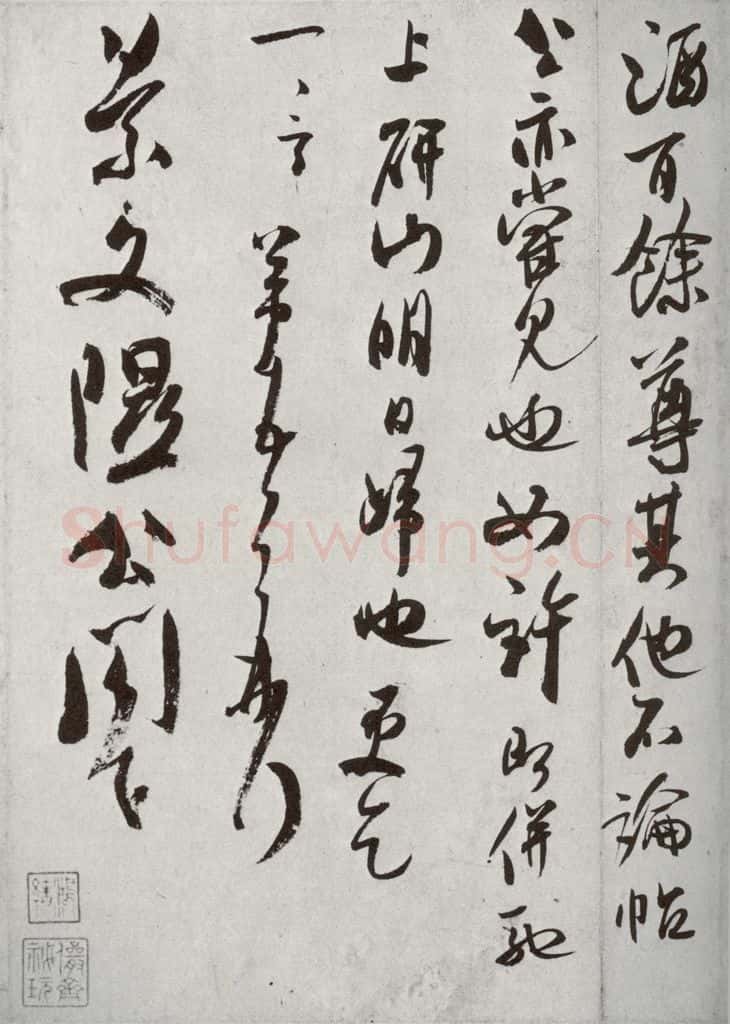 酒百餘尊其他不論帖
公亦嘗見也如許即併馳
上研山明日歸也更乞
一言芾頓首再拜
景文隰公閣下
儼齋秘玩
Shufawang.CN